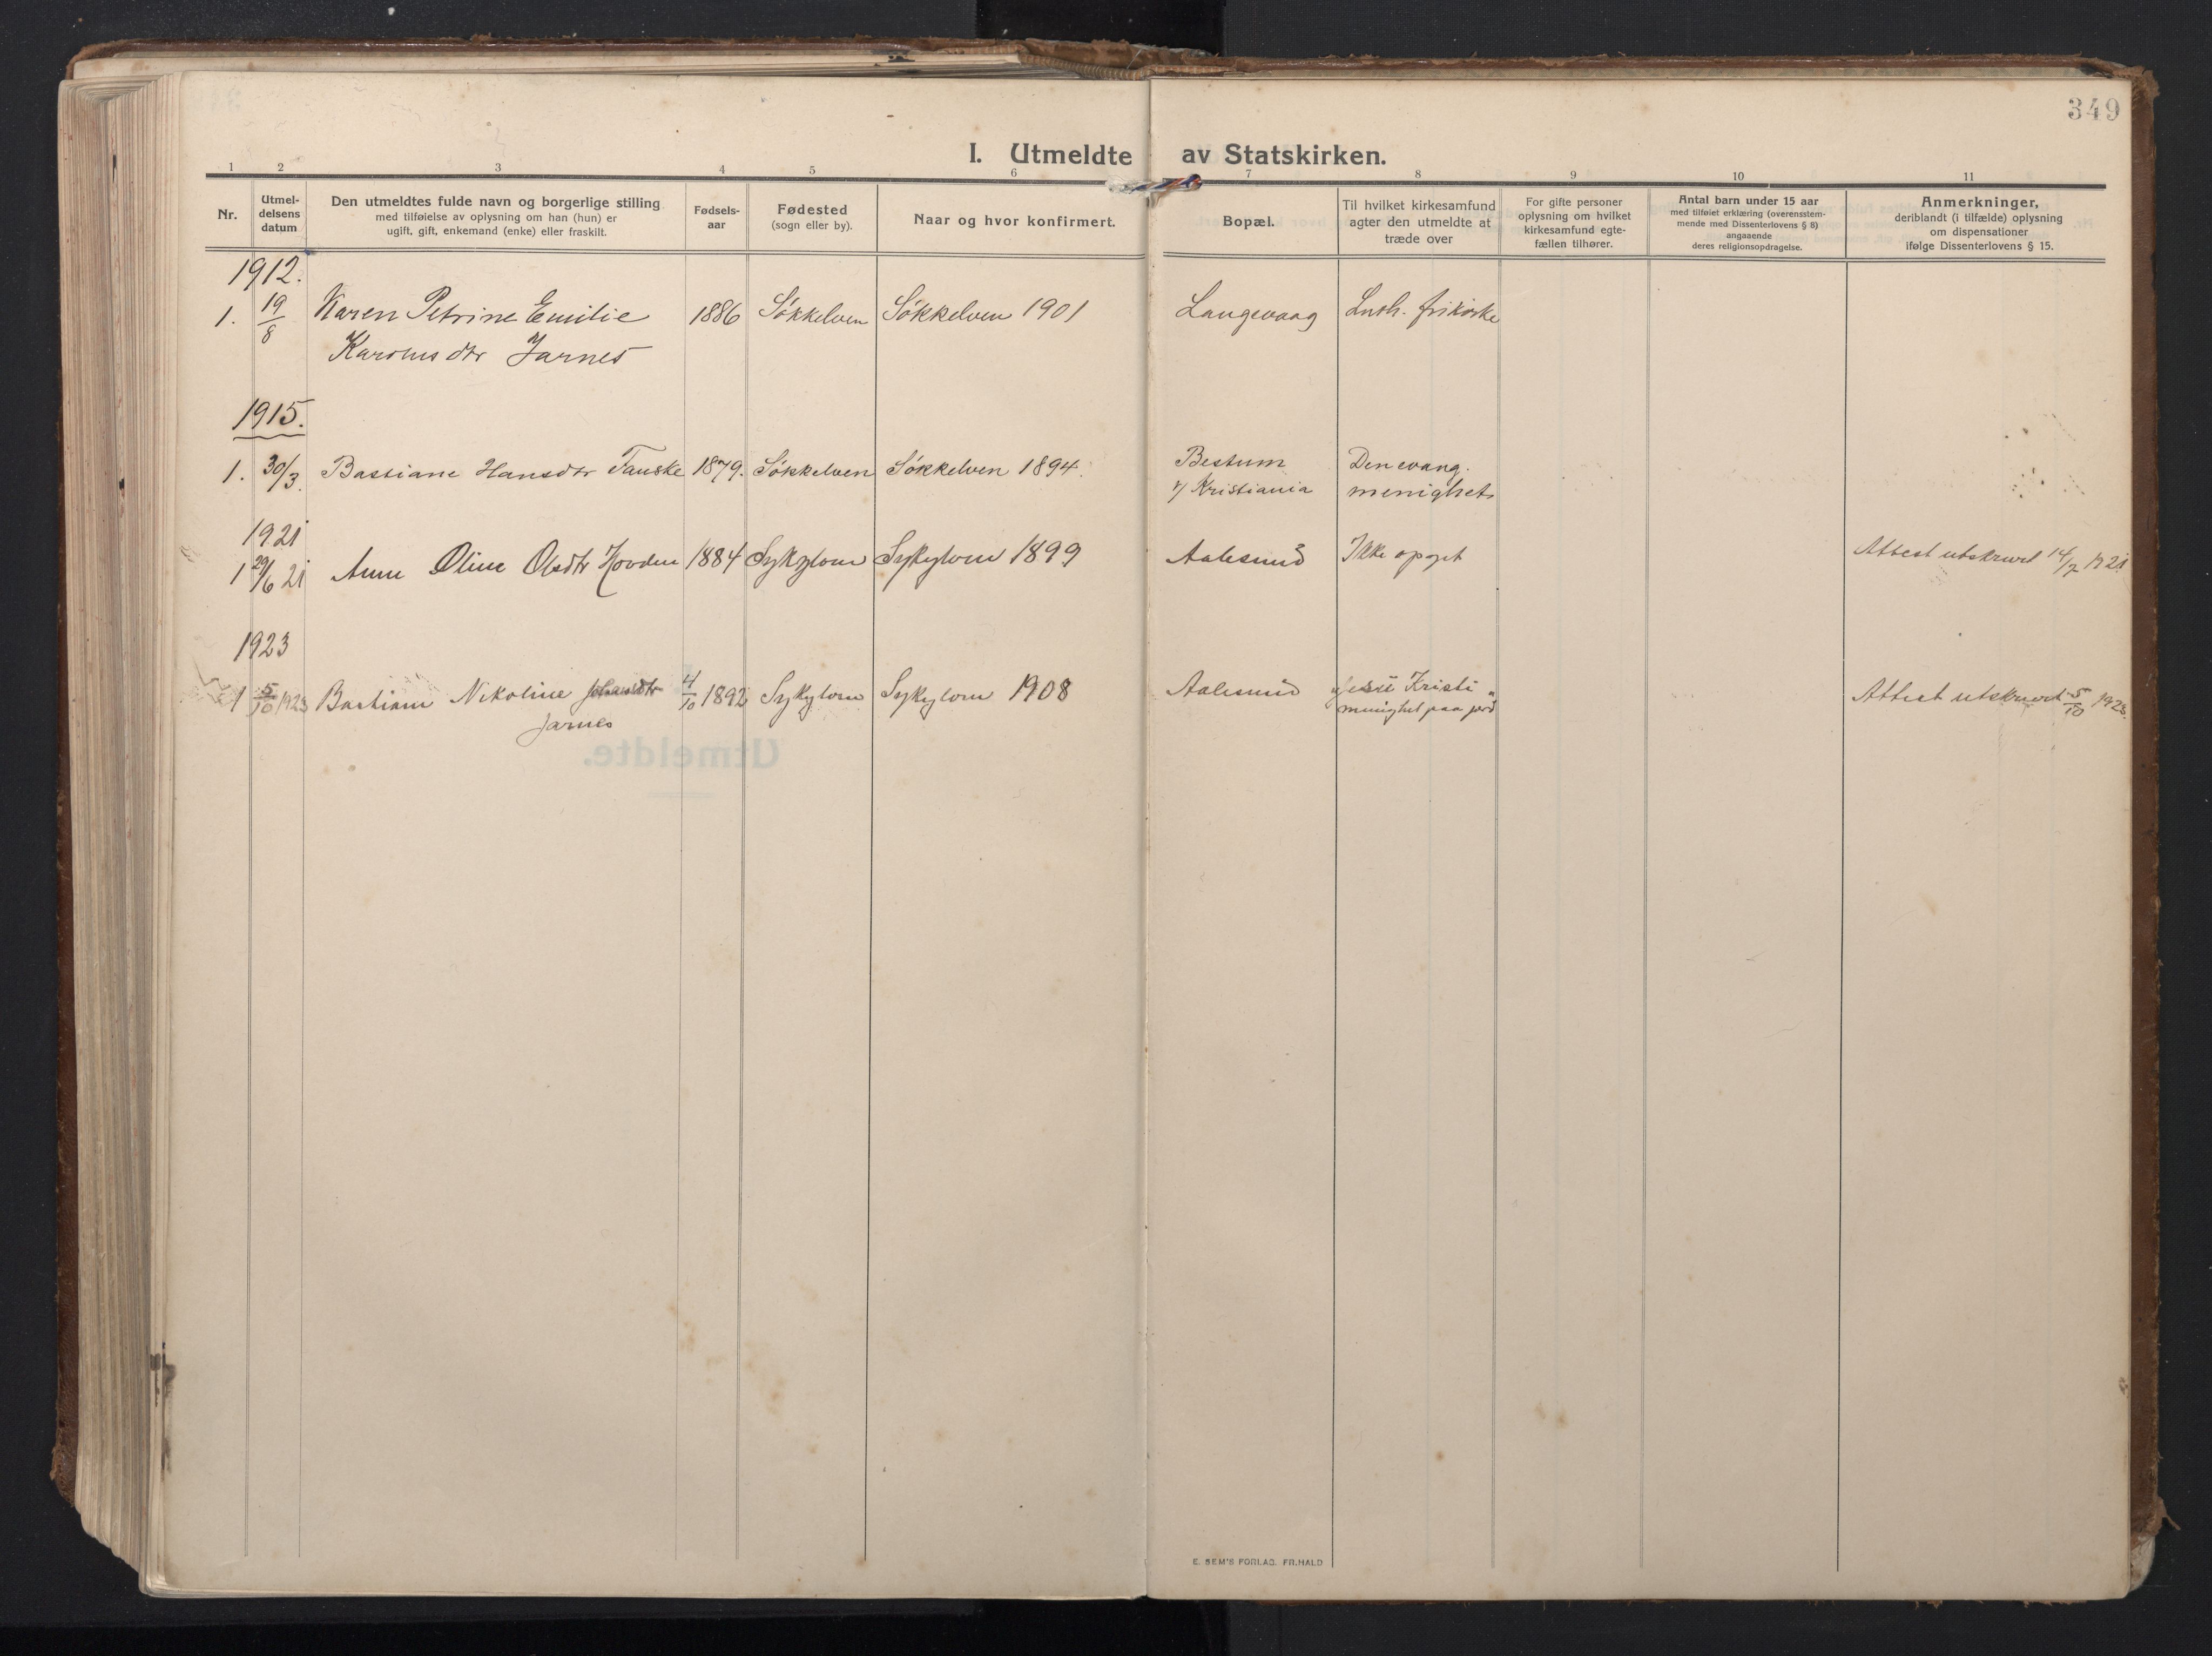 349
I. Utmeldte av Statskirken.
1 2 3 4 5 6 7 8 9 10 11
Nr.
Utmel-
delsens
datum
Den utmeldtes fulde navn og borgerlige stilling
med tilføielse av oplysning om han (hun) er
ugift, gift, enkemand (enke) eller fraskilt.
Fødsels-
aar
Fødested
(sogn eller by).
Naar og hvor konfirmert.
Bopæl.
Til hvilket kirkesamfund
agter den utmeldte at
træde over
For gifte personer
oplysning om hvilket
kirkesamfund egte-
fællen tilhører.
Antal barn under 15 aar
med tilføiet erklæring (overensstem-
mende med Dissenterlovens § 8)
angaaende
deres religionsopdragelse.
Anmerkninger,
deriblandt (i tilfælde) oplysning
om dispensationer
ifølge Dissenterlovens § 15.
1912.
1. 19/8 Karen Petrine Emilie 1886 Søkkelven Søkkelven 1901 Langevaag Luth. frikirke
Karolusdtr Jarnes
1915.
1. 30/3. Bastiane Hansdtr Tanske 1879. Søkkelven Søkkelven 1894. Bestum Den evang.
v/ Kristiania menighet
1921
1 29/6 21 Anne Oline Olsdtr Hovden 1884 Sykylven Sykylven 1899 Aalesund Ikke opgit Attest utskrevet 14/7 1921
1923
1 5/10 1923 Bastiane Nikoline Johansdtr 4/10 1892 Sykylven Sykylven 1908 Aalesund Jesu Kristi Attest utskrevet 5/10 1923.
Jarnes menighet paa jord
Utmeldte.
E. SEM'S FORLAG. FR.HALD